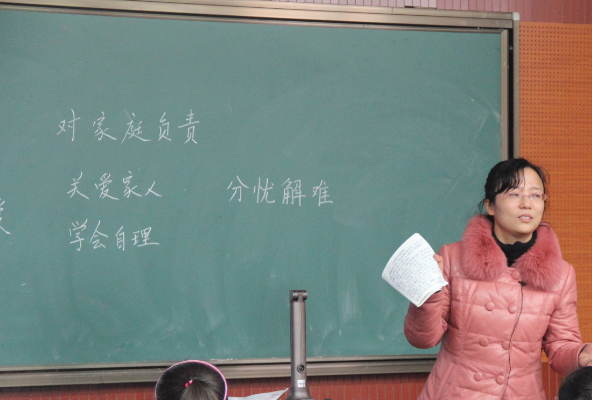 对家庭负责
关爱家人 分忧解难
学会自理